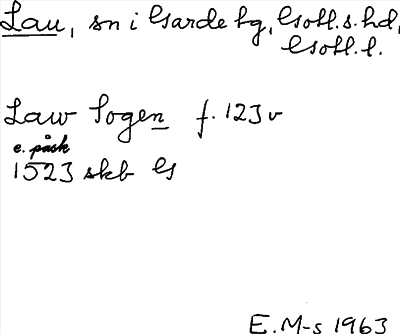 Lau, sn i Garde tg, Gotl. s. hd,
Gotl. l.
Law Sogen f. 123 v
e. påsk
1523 skb G
E. M-s 1963